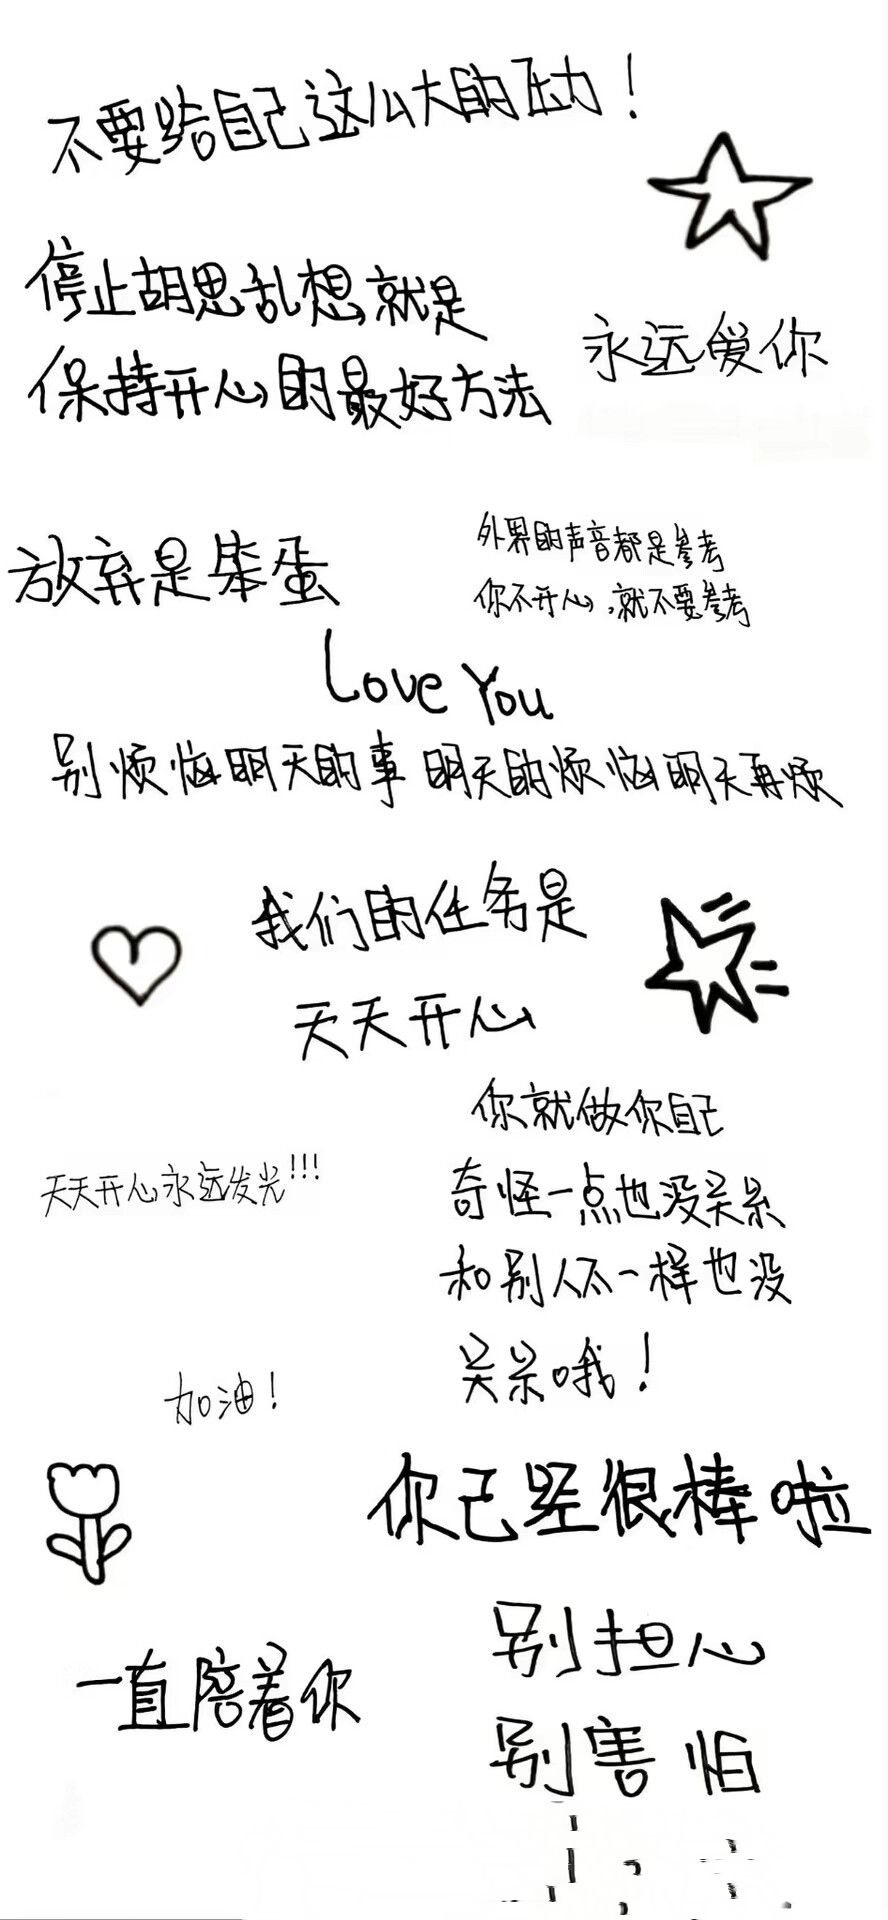 不要给自己这么大的压力！
停止胡思乱想就是
保持开心的最好方法
永远爱你
放弃是笨蛋
外界的声音都是参考
你不开心，就不要参考
Love You
别烦恼明天的事 明天的烦恼明天再烦
我们的任务是
天天开心
你就做你自己
奇怪一点也没关系
和别人不一样也没
关系哦！
天天开心永远发光!!!
加油！
你已经很棒啦
一直陪着你
别担心
别害怕